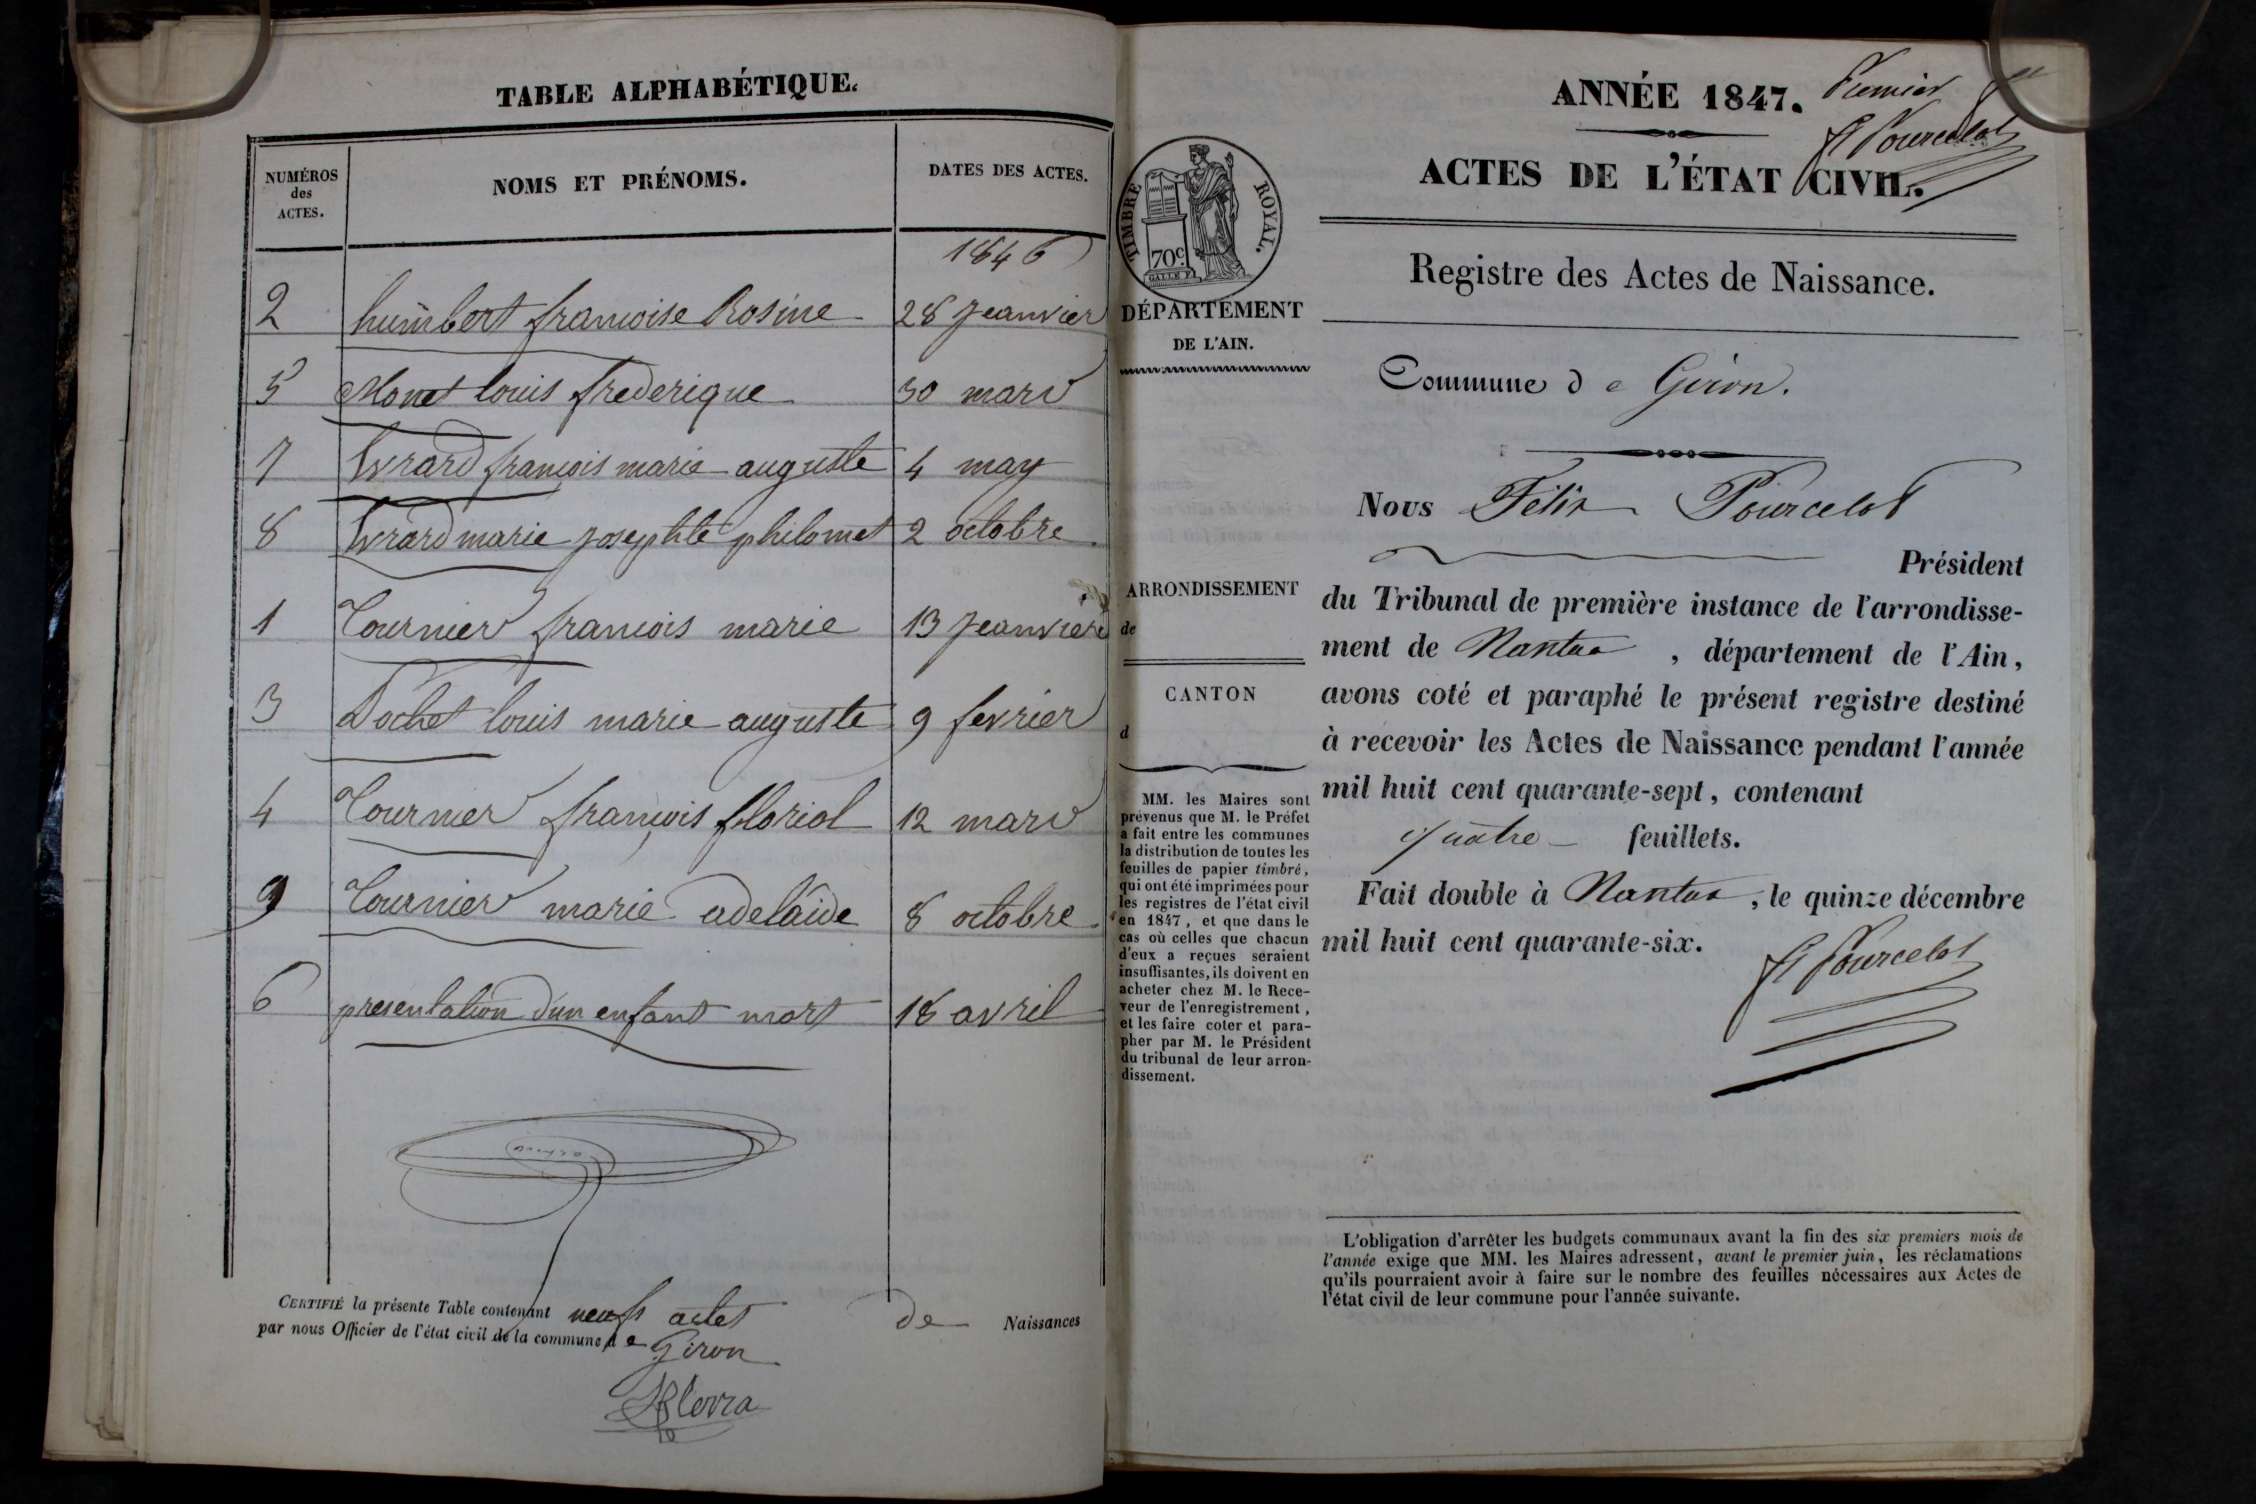 TABLE ALPHABÉTIQUE.
NUMÉROS
des
ACTES.
NOMS ET PRÉNOMS.
DATES DES ACTES.
1846
2 humbert francoise Rosine 28 Jeanvier
5 Monet louis frederique 30 mars
7 Evrard francois marie auguste 4 may
8 Evrard marie josephte philomet 2 octobre
1 Tournier francois marie 13 Jeanvier
3 Dochet louis marie auguste 9 fevrier
4 Tournier françois floriol 12 mars
9 Tournier marie adelaide 8 octobre
6 presentation d'un enfant mort 18 avril
CERTIFIÉ la présente Table contenant neufs actes de Naissances
par nous Officier de l'état civil de la commune de Giron
ANNÉE 1847.
Premier
F Pourcelot
ACTES DE L'ÉTAT CIVIL.
TIMBRE ROYAL.
70c.
Registre des Actes de Naissance.
DÉPARTEMENT
DE L'AIN.
Commune de Giron.
Nous Félix Pourcelot
Président
ARRONDISSEMENT
de
CANTON
d
du Tribunal de première instance de l'arrondisse-
ment de Nantua, département de l'Ain,
avons coté et paraphé le présent registre destiné
à recevoir les Actes de Naissance pendant l'année
mil huit cent quarante-sept, contenant
quatre feuillets.
Fait double à Nantua, le quinze décembre
mil huit cent quarante-six.
F Pourcelot
MM. les Maires sont
prévenus que M. le Préfet
a fait entre les communes
la distribution de toutes les
feuilles de papier timbré,
qui ont été imprimées pour
les registres de l'état civil
en 1847, et que dans le
cas où celles que chacun
d'eux a reçues seraient
insuffisantes, ils doivent en
acheter chez M. le Rece-
veur de l'enregistrement,
et les faire coter et para-
pher par M. le Président
du tribunal de leur arron-
dissement.
L'obligation d'arrêter les budgets communaux avant la fin des six premiers mois de
l'année exige que MM. les Maires adressent, avant le premier juin, les réclamations
qu'ils pourraient avoir à faire sur le nombre des feuilles nécessaires aux Actes de
l'état civil de leur commune pour l'année suivante.